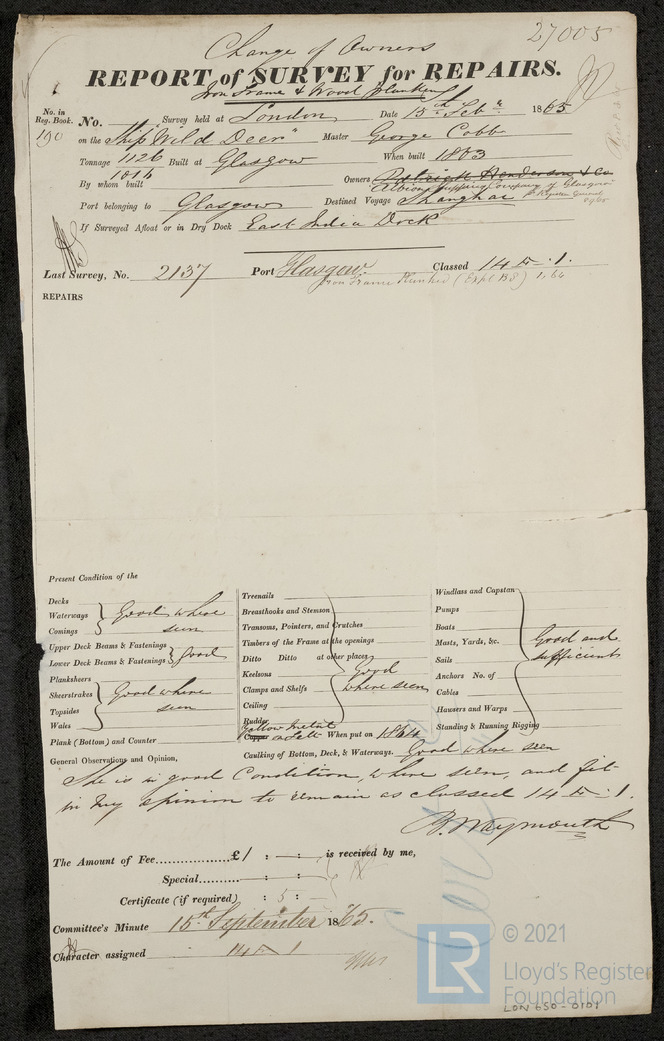 27005
Change of Owners
REPORT of SURVEY for REPAIRS.
Iron Frame & Wood Planking
No. in Reg. Book.
190
No. Survey held at London Date 15th Feb 1865
on the Ship "Wild Deer" Master George Cobb
Tonnage 1126 Built at Glasgow When built 1863
1016
By whom built Owners Patrick Henderson & Co
Albion Shipping Company of Glasgow
Port belonging to Glasgow Destined Voyage Shanghai
If Surveyed Afloat or in Dry Dock East India Dock
Last Survey, No. 2137 Port Glasgow Classed 14 1.
Iron Frame Planked (Expl BS) 1,64
REPAIRS
Present Condition of the
Decks
Waterways
Comings
Good where seen
Upper Deck Beams & Fastenings
Lower Deck Beams & Fastenings
Good
Planksheers
Sheerstrakes
Topsides
Wales
Good where seen
Plank (Bottom) and Counter
Treenails
Breasthooks and Stemson
Transoms, Pointers, and Crutches
Timbers of the Frame at the openings
Ditto Ditto at other places
Keelsons
Clamps and Shelfs
Ceiling
Rudder
Good where seen
Yellow Metal
Copper Felt When put on 1864
Caulking of Bottom, Deck, & Waterways. Good where seen
Windlass and Capstan
Pumps
Boats
Masts, Yards, &c.
Sails
Anchors No. of
Cables
Hausers and Warps
Standing & Running Rigging
Good and sufficient
General Observations and Opinion,
She is in good Condition, where seen, and fit
in my opinion to remain as classed 14 1.
B. Waymouth
The Amount of Fee £1 : - : is received by me,
Special : - :
Certificate (if required) : 5 :
Committee's Minute 15th September 1865.
Character assigned 14 1
LR
© 2021
Lloyd's Register
Foundation
LON 650-0101